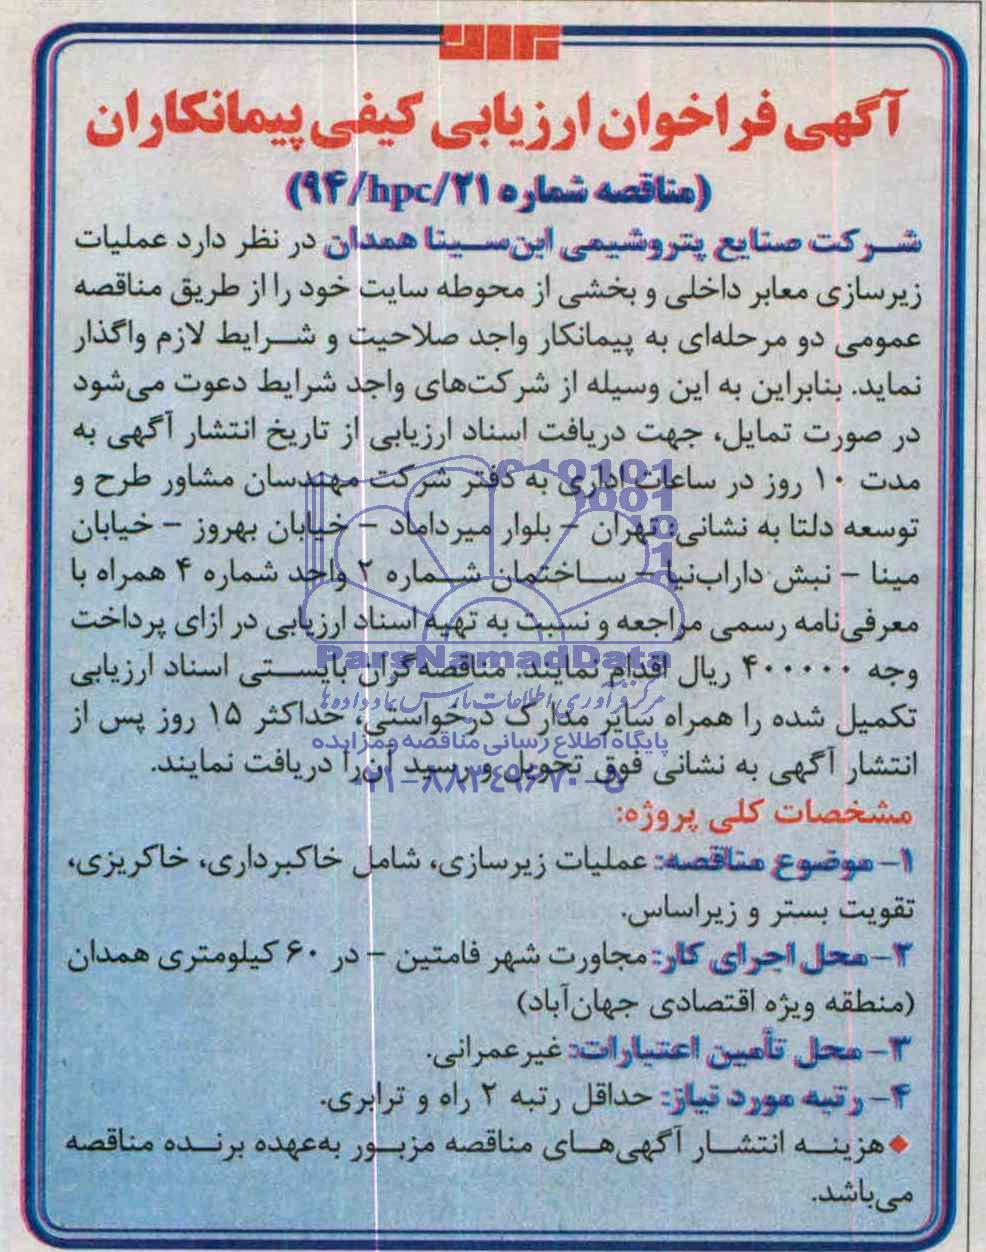 آگهی فراخوان ارزیابی کیفی پیمانکاران
(مناقصه شماره ۹۴/hpc/۲۱)
شرکت صنایع پتروشیمی ابن‌سینا همدان در نظر دارد عملیات
زیرسازی معابر داخلی و بخشی از محوطه سایت خود را از طریق مناقصه
عمومی دو مرحله‌ای به پیمانکار واجد صلاحیت و شرایط لازم واگذار
نماید. بنابراین به این وسیله از شرکت‌های واجد شرایط دعوت می‌شود
در صورت تمایل، جهت دریافت اسناد ارزیابی از تاریخ انتشار آگهی به
مدت ۱۰ روز در ساعات اداری به دفتر شرکت مهندسان مشاور طرح و
توسعه دلتا به نشانی تهران – بلوار میرداماد – خیابان بهروز – خیابان
مینا – نبش داراب‌نیا – ساختمان شماره ۲ واحد شماره ۴ همراه با
معرفی‌نامه رسمی مراجعه و نسبت به تهیه اسناد ارزیابی در ازای پرداخت
وجه ۴۰۰۰۰۰ ریال اقدام نمایند. مناقصه‌گران بایستی اسناد ارزیابی
تکمیل شده را همراه سایر مدارک درخواستی، حداکثر ۱۵ روز پس از
انتشار آگهی به نشانی فوق تحویل و رسید آن‌را دریافت نمایند.
مشخصات کلی پروژه:
۱- موضوع مناقصه: عملیات زیرسازی، شامل خاکبرداری، خاکریزی،
تقویت بستر و زیراساس.
۲- محل اجرای کار: مجاورت شهر فامنین – در ۶۰ کیلومتری همدان
(منطقه ویژه اقتصادی جهان‌آباد)
۳- محل تأمین اعتبارات: غیرعمرانی.
۴- رتبه مورد نیاز: حداقل رتبه ۲ راه و ترابری.
◆هزینه انتشار آگهی‌های مناقصه مزبور به‌عهده برنده مناقصه
می‌باشد.
ParsNamadData
مرکز فرآوری اطلاعات پارس نماد داده‌ها
پایگاه اطلاع رسانی مناقصه و مزایده
۰۲۱-۸۸۳۴۹۶۷۰-۵